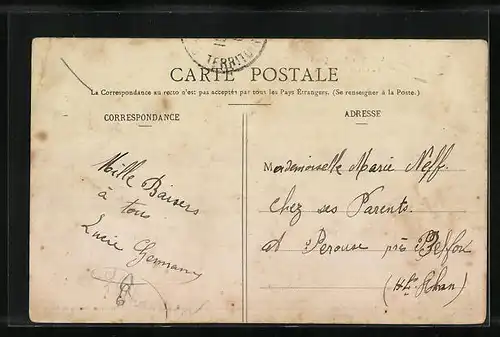 TERRITO
CARTE POSTALE
La Correspondance au recto n'est pas acceptée par tous les Pays Étrangers. (Se renseigner à la Poste.)
CORRESPONDANCE
ADRESSE
Mille Baisers
à tous
Lucie Germann
Mademoiselle Marie Neff.
chez ses Parents.
at Perouse près Belfort
(Ht Rhin)